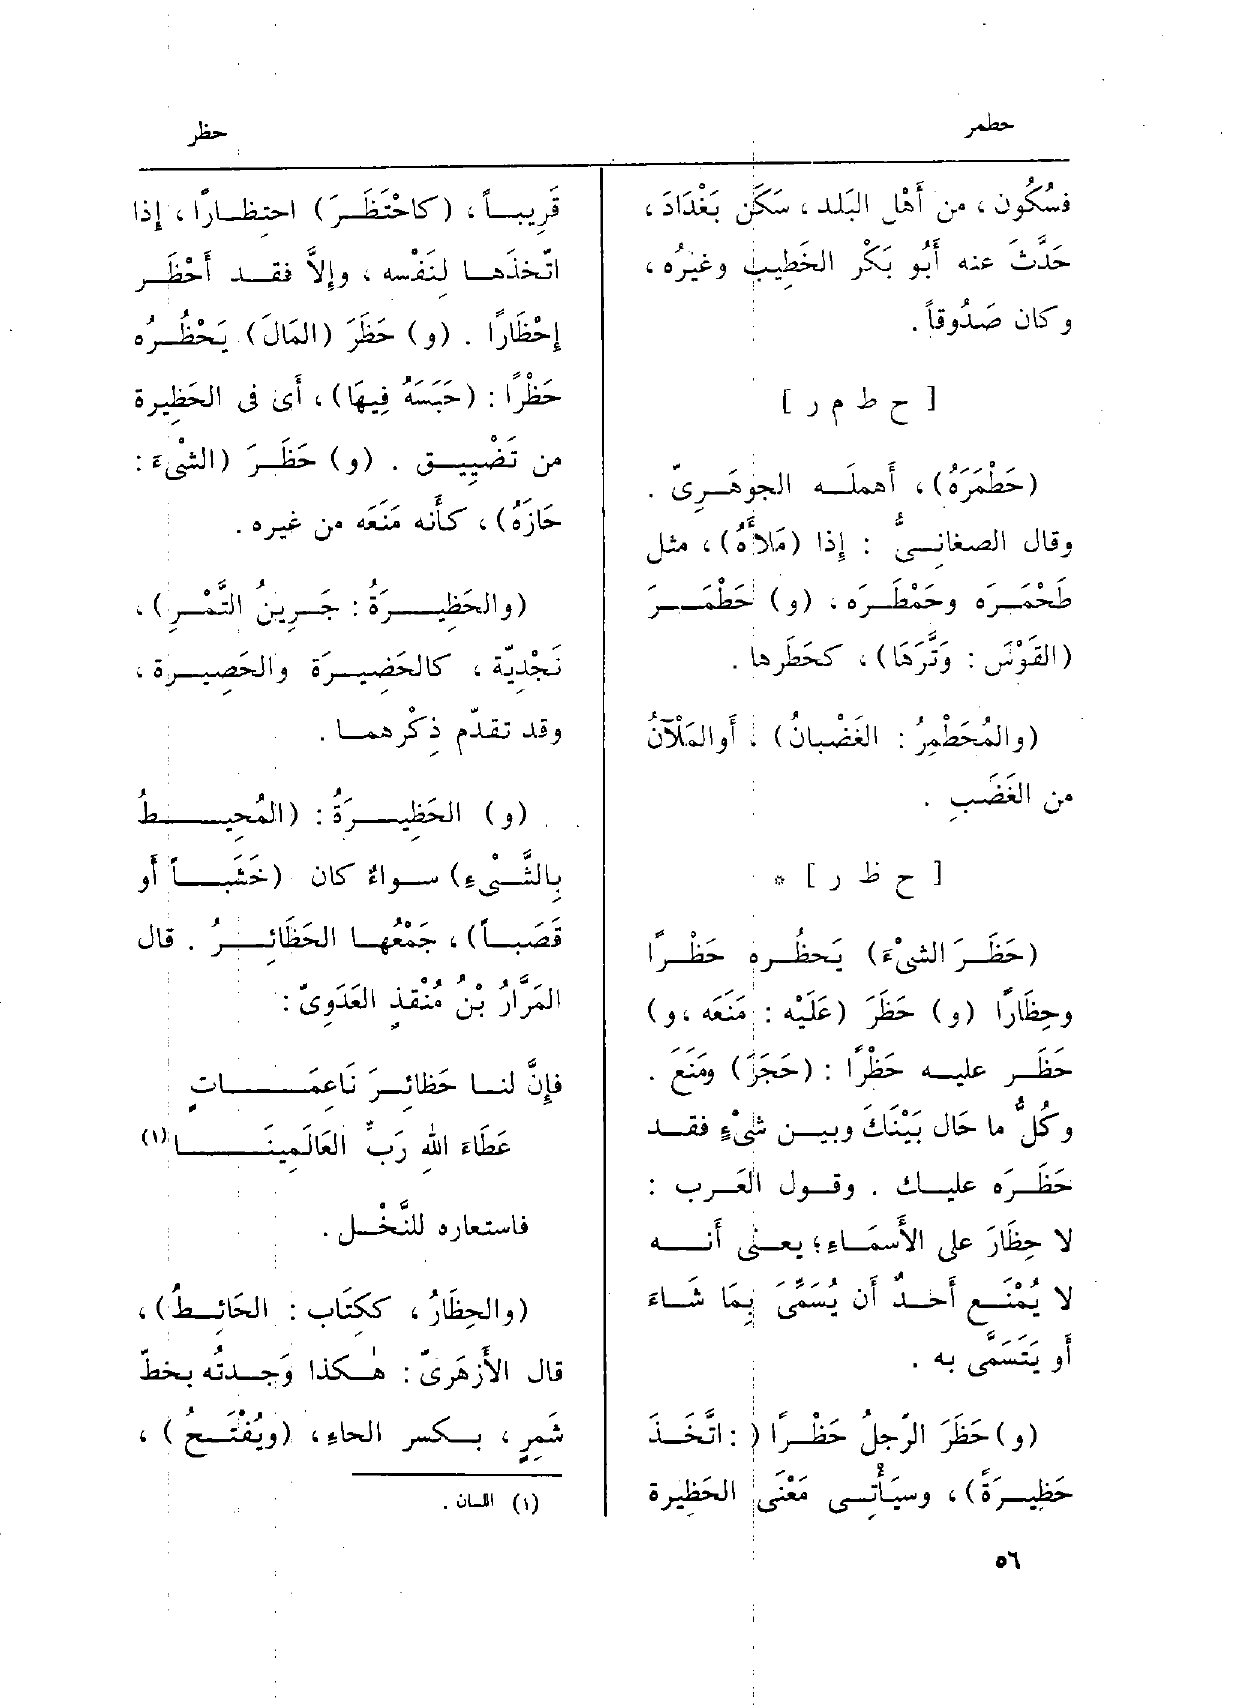 حطمر
حظر
فسُكُون ، من أَهْل البَلد ، سَكَن بَغْدَادَ ،
حَدَّثَ عنه أَبُو بَكْر الخَطِيب وغيرُه ،
وكان صَدُوقاً .
[ ح ط م ر ]
(حَطْمَرَهُ) ، أهملَـه الجوهَـرِىّ .
وقال الصغانِـىُّ : إذا (مَلأَهُ) ، مثل
طَحْمَـرَه وحَمْطَـرَه . (و) حَطْمَـــرَ
(القَوْسَ : وَتَّرَهَا) ، كحَطَرها .
(والمُحَطْمِرُ : الغَضْبانُ) . أوالمَلْآنُ
من الغَضَبِ .
[ ح ظ ر ] *
(حَظَـرَ الشىْءَ) يَحظُـره حَظْـرًا
وحِظَارًا (و) حَظَرَ (عَلَيْه : مَنَعَه ، و)
حَظَـر عليـه حَظْرًا : (حَجَرَ) ومَنَعَ .
وكُلُّ ما حَال بَيْنَكَ وبيـن شَىْءٍ فقـد
حَظَـرَه عليـك . وقـول العَـرب :
لا حِظَارَ على الأَسمَـاءِ ؛ يعـنى أنـه
لا يُمْنَـع أحـدٌ أن يُسَمَّى بِمَا شَـاءَ
أو يَتَسَمَّى به .
(و) حَظَرَ الرّجلُ حَظْـرًا ( : اتَّخَـذَ
حَظِيـرَةً) ، وسيَأْتـى مَعْنَى الحَظِيرة
قَرِيبـاً ، (كاحْتَظَـرَ) احتِظـارًا ، إذا
اتّخذَهـا لنَفْسه ، وإلاَّ فقـد أَحْظَـر
إحْظَارًا . (و) حَظَرَ (المَالَ) يَحْظُـرُه
حَظْرًا : (حَبَسَهُ فِيهَا) ، أى فى الحَظِيرة
من تَضْيِيـق . (و) حَظَـرَ (الشَّىءَ :
حَازَهُ) ، كأنه مَنَعَه من غيره .
(والحَظِيــرَةُ : جَـرِينُ التَّمْـرِ) ،
نَجْدِيّة ، كالحَضِيـرَة والحَصِيـرة ،
وقد تقدّم ذِكْرهمـا .
(و) الحَظِيــرَةُ : (المُحِيـــطُ
بِالشَّـىْءِ) سـواءٌ كان (خَشَبـاً أو
قَصَبـاً) ، جَمْعُهـا الحَظَائِـرُ . قال
المَرَّارُ بْنُ مُنْقذٍ العَدَوِىّ :
فإِنَّ لنـا حَظائِـرَ نَاعِمَــــاتٍ
عَطَاءَ الله رَبِّ العَالَمِينَــــا (١)
فاستعاره للنَّخْـل .
(والحِظَارُ ، ككِتَاب : الحَائِـطُ) ،
قال الأَزهَرِىّ : هٰـكذا وَجـدتُه بخطّ
شَمِرٍ ، بـكسر الحاءِ ، (ويُفْتَـحُ) ،
(١) اللسان .
٥٦